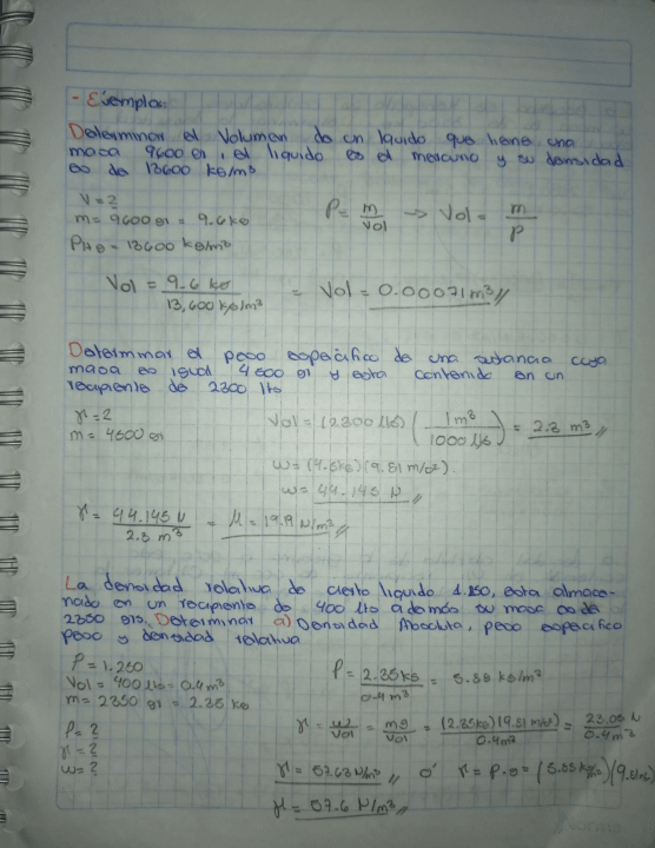 - Ejemplo:
Determinar el Volumen de un líquido que tiene una
masa 9600 gr, el líquido es el mercurio y su densidad
es de 13600 kg/m³
V = ?
m = 9600 gr = 9.6 kg
P = m/Vol -> Vol = m/P
PHg = 13600 kg/m³
Vol = 9.6 kg / 13,600 kg/m³ = Vol = 0.00071 m³ //
Determinar el peso específico de una sustancia cuya
masa es igual 4500 gr y esta contenido en un
recipiente de 2300 lts
γ = ?
m = 4500 gr
Vol = (2300 lts) (1 m³ / 1000 lts) = 2.3 m³ //
w = (4.5kg)(9.81 m/s²).
w = 44.145 N //
γ = 44.145 N / 2.3 m³ = γ = 19.19 N/m³ //
La densidad relativa de cierto líquido esta almace-
nado en un recipiente de 400 lts además su masa es de
2350 grs. Determinar a) Densidad Absoluta, peso específico
peso y densidad relativa
P = 1.250
Vol = 400 lts = 0.4 m³
m = 2350 gr = 2.35 kg
P = 2.35 kg / 0.4 m³ = kg/m³
P = ?
γ = ?
w = ?
γ = w/Vol = mg/Vol = (2.35kg)(9.81 m/s²) / 0.4 m³ = 23.05 N / 0.4 m³
γ = 57.63 N/m³ // ó γ = P·g = (
γ = 57.6 N/m³ //